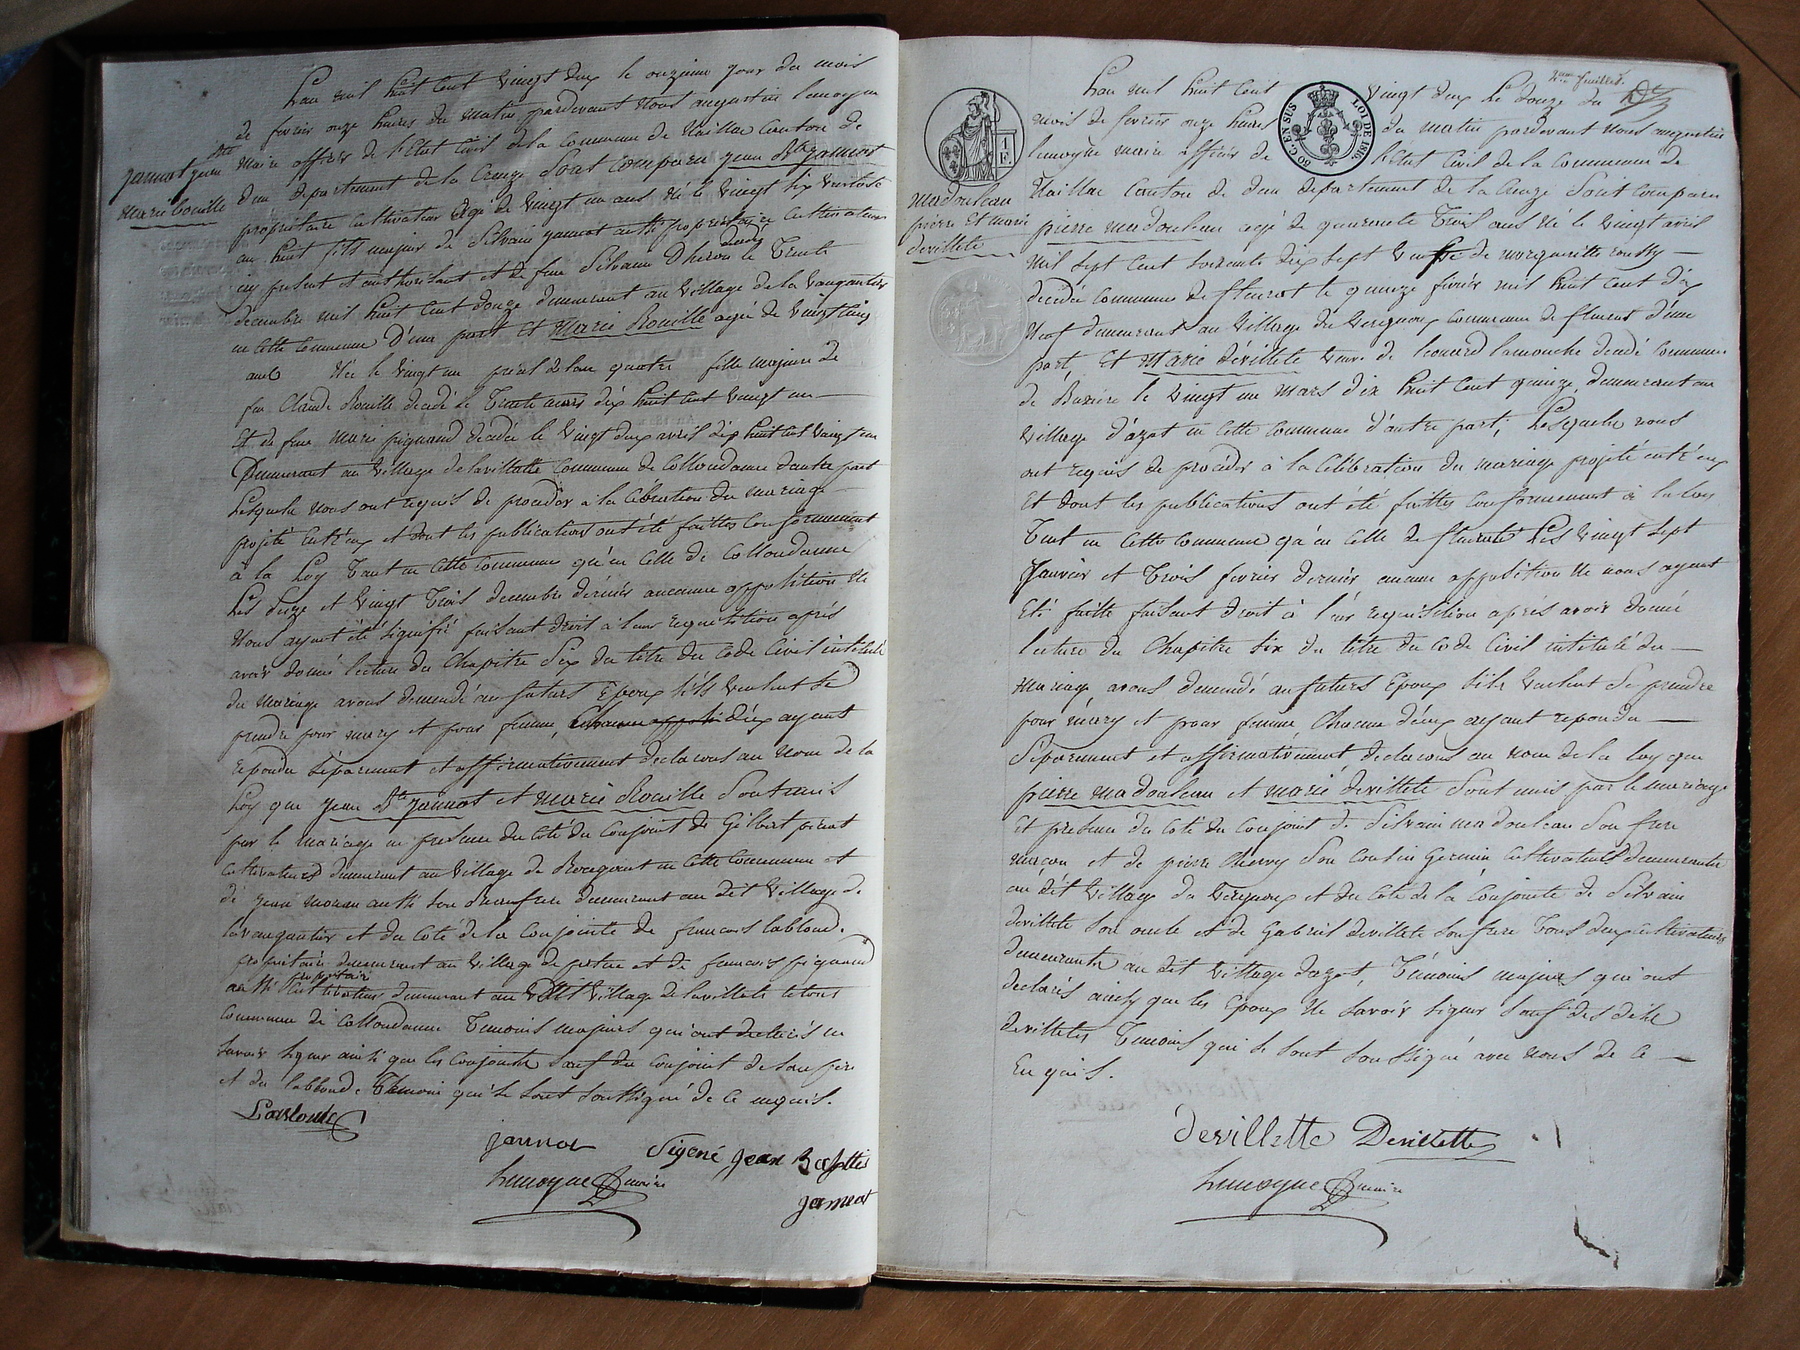 L'an mil huit cent vingt deux le onzieme jour du mois
de fevrier onze heures du matin pardevant nous augustin lemoyne
maire officier de l'Etat Civil de la Commune de Naillac Canton de
dun departement de la Creuze Sont Comparu jean Bte Jannot
jannot jean Bte
Marie Rouille
propriétaire cultivateur agé de vingt un ans né le vingt six
an huit fils majeur de Silvain jannot aussi propriétaire cultivateur
icy present et authorisant et de feue Silvaine Dheron décédé le Trente
decembre mil huit Cent douze demeurant au village de la Vaugautier
en cette Commune D'une part Et Marie Rouille agée de vingt cinq
ans Née le vingt un prérial de l'an quatre fille majeure de
feu Claude Rouille décédé le Trente mars dix huit Cent vingt un
Et de feue Marie pignaud decedée le vingt deux avril dix huit Cent vingt un
Demeurant au village de lavillatte Commune de Collondanne d'autre part
Lesquels Nous ont requis de proceder a la Célébration du mariage
projeté entr'eux et dont les publications ont été faittes Conformement
à la Loy Tant en Cette Commune qu'en Celle de Collondanne
Les Seize et vingt Trois decembre derniés aucunne oppolition Ne
Nous ayant été signifié faisant droit à leur requisition après
avoir donné lecture du Chapitre Six du titre du Code Civil intitulé
du Mariage avons demandé au futurs Epoux s'ils veulent Se
prendre pour mary et pour femme, d'eux ayant
repondu Séparement et affirmativement declarons au Nom de la
Loy que jean Bte Jannot et Marie Rouille Sont unis
par le mariage en presence du Coté du Conjoint de Gilbert
Cultivateurs demeurant au village de en Cette Commune et
de jean aussi son Beaufrere demeurant au dit village de
lavaugautier et du Coté de la Conjointe de francois lablond.
propriétaire demeurant au village de et de francois pignaud
aussi propriétaire demeurant au dit village de lavillatte le tout
Commune de Collondanne Temoins majeurs qui ont declarés ne
Savoir Signer ainsi que les Conjoints Sauf du Conjoint de Son père
et du lablond. Temoin qui se sont Soussigné de Ce enquis.
Lablonde
jannot Signé jean Baptiste
Lemoyne maire
jannot
2eme feuillet.
L'an mil huit Cent vingt deux Le douze du
mois de fevrier onze heures du matin pardevant nous augustin
lemoyne maire officier de l'Etat Civil de la Commune de
Naillac Canton de dun departement de la Creuze Sont Comparu
1 F.
50 C. EN SUS
LOI DE 1816.
Madouleau
pierre Et marie
devillete
pierre madouleau agé de quarente Trois ans né le vingt avril
mil Sept Cent Soixante dix Sept veuf de marguerite
decedée Commune de fleurat le quinze fevrier mil huit Cent dix
Neuf demeurant au village du Verignoux Commune de fleurat d'une
part, Et Marie dévillete veuve de leonard lamouche décédé Commune
de Buxiere le vingt un Mars dix huit Cent quinze, demeurant au
village d'azat en Cette Commune d'autre part; Lesquels nous
ont requis de proceder à la Célébration du mariage projeté entr'eux
Et dont les publications ont été faittes Conformement à la Loy
Tant en Cette Commune qu'en Celle de fleurat Les vingt Sept
Janvier et Trois fevrier derniér aucune oppolition Ne nous ayant
Eté faitte faisant droit à leur requisition après avoir donné
lecture du Chapitre Six du titre du Code Civil intitulé du
Mariage, avons demandé au futurs Epoux s'ils veulent Se prendre
pour mary et pour femme Chacun d'eux ayant repondu
Séparement et affirmativement, declarons au nom de la Loy que
pierre Madouleau et marie devillete Sont unis par le mariage
Et presence du Coté du Conjoint de Silvain madouleau Son frere
maçon et de pierre Cherry Son Cousin Germin Cultivateurs demeurants
au dit village du Verignoux et du Coté de la Conjointe de Silvain
devillete Son oncle et de Gabriel devillete Son frere Tous deux cultivateurs
demeurants au dit village d'azat, Témoins majeurs qui ont
declarés ainsy que les Epoux Ne Savoir Signer Sauf des dits
devilletes Temoins qui se sont Soussigné avec Nous de Ce
Enquis.
devillette Devillette
Lemoyne maire